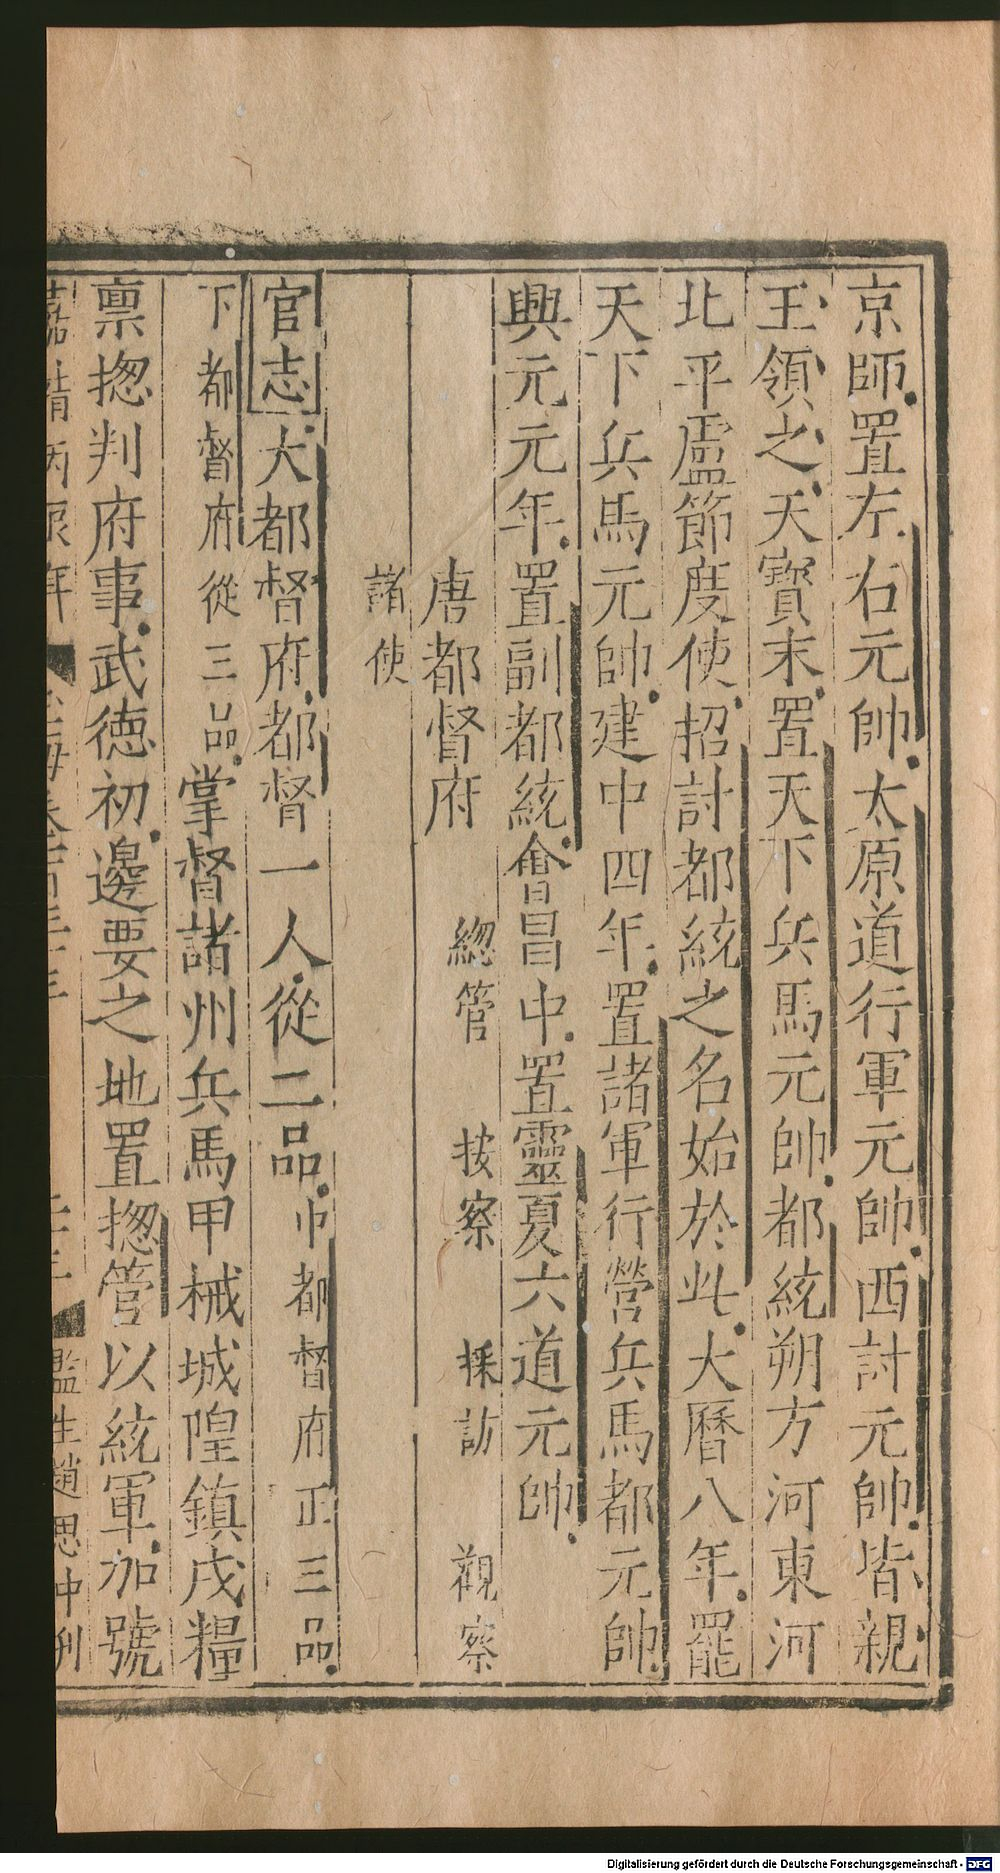 京師置左右元帥太原道行軍元帥西討元帥皆親
王領之天寶末置天下兵馬元帥都統朔方河東河
北平盧節度使招討都統之名始於此大曆八年罷
天下兵馬元帥建中四年置諸軍行營兵馬都元帥
興元元年置副都統會昌中置靈夏六道元帥
唐都督府 總管 按察 採訪 觀察
諸使
官志大都督府都督一人從二品中都督府正三品
下都督府從三品掌督諸州兵馬甲械城隍鎮戍糧
禀揔判府事武德初邊要之地置揔管以統軍加號
嘉靖丙辰年 監生趙思中刊
Digitalisierung gefördert durch die Deutsche Forschungsgemeinschaft - DFG